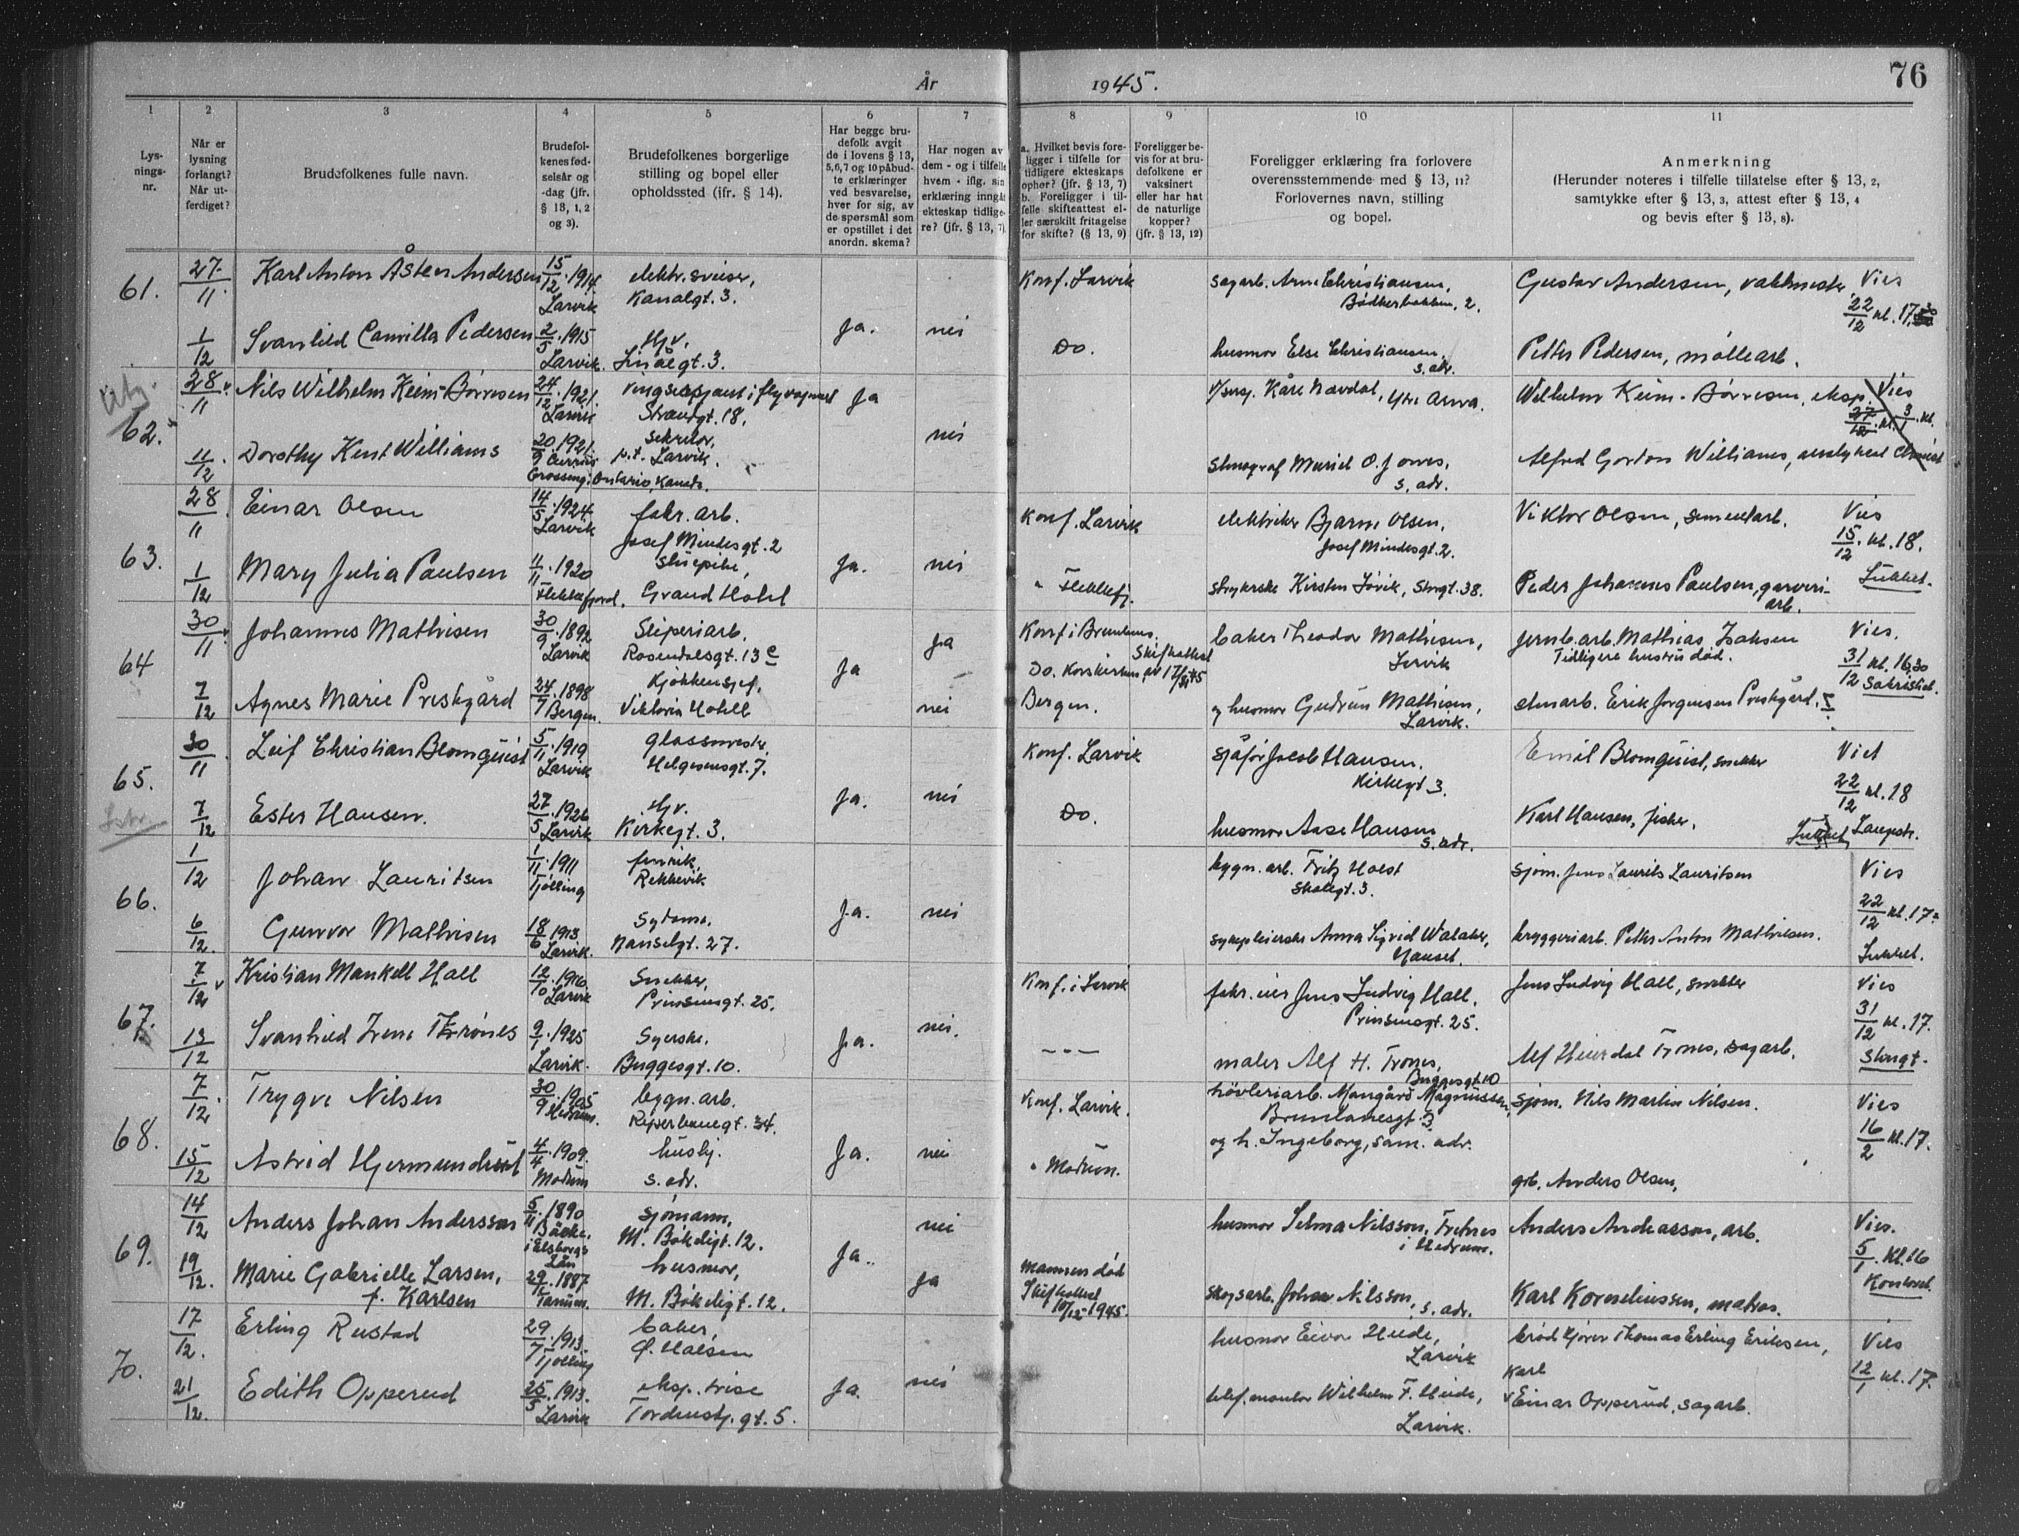 År 1945.
76
1 2 3 4 5 6 7 8 9 10 11
Lys-
nings-
nr.
Når er
lysning
forlangt?
Når ut-
ferdiget?
Brudefolkenes fulle navn.
Brudefol-
kenes fød-
selsår og
-dag (jfr.
§ 13, 1, 2
og 3).
Brudefolkenes borgerlige
stilling og bopel eller
opholdssted (ifr. § 14).
Har begge bru-
defolk avgit
de i lovens § 13,
5,6,7 og 10 påbud-
te erklæringer
ved besvarelse,
hver for sig, av
de spørsmål som
er opstillet i det
anordn. skema?
Har nogen av
dem - og i tilfelle
hvem - iflg. sin
erklæring inngåt
ekteskap tidlige-
re? (jfr. § 13, 7).
a. Hvilket bevis fore-
ligger i tilfelle for
tidligere ekteskaps
opher? (jfr. § 13, 7)
b. Foreligger i til-
felle skifteattest el-
ler særskilt fritagelse
for skifte? (§ 13, 9)
Foreligger be-
vis for at bru-
defolkene er
vaksinert
eller har hat
de naturlige
kopper?
(jfr. § 13, 12)
Foreligger erklæring fra forlovere
overensstemmende med § 13, 11?
Forlovernes navn, stilling
og bopel.
Anmerkning
(Herunder noteres i tilfelle tillatelse efter § 13, 2,
samtykke efter § 13, 3, attest efter § 13, 4
og bevis efter § 13, 8).
61. 27/11 Karl Anton Åsten Andersen 15/12.1914. Larvik elektr. sveiser, Kanalgt. 3. Konf. Larvik sagarb. Arne Christiansen, Bødkerbakken, 2. Gustav Andersen, vaktmester Vies 22/12 kl. 17,
1/12 Svanhild Camilla Pedersen 2/5.1915 Larvik. Hjv. Linåegt. 3. Ja. nei Do. husmor Else Christiansen, s. adr. Petter Pedersen, møllearb.
62. 28/11 Nils Wilhelm Keim-Børresen 24/12.1921. Larvik Strandgt. 18. Ja Kåre Nævdal, Wilhelm Keim-Børresen, eksp. Vies 27/12 kl. 3/1 kl.
11/12. Dorothy Kent Williams 20/9.1921. Ontario, Kanada. sekretær, p.t. Larvik. nei Stenograf Muriel O. Jones, s. adr. Alfred Gordon Williams,
63. 28/11 Einar Olsen 14/5.1924. Larvik fabr. arb. Josef Mindesgt. 2 Konf. Larvik elektriker Bjarne Olsen, Josef Mindesgt. 2. Viktor Olsen, sementarb. Vies 15/12. kl. 18.
1/12 Mary Julia Paulsen 11/11.1920 Flekkefjord. stuepike, Grand Hotel Ja. nei " Flekkefj. strykerske Kirsten Søvik, Strgt. 38. Peder Johannes Paulsen, garveri-
arb. Lukket.
64 30/11 Johannes Mathisen 30/9.1892 Larvik Sliperiarb. Rosendalsgt. 13 c ja Konf i Brunlanes. Skifteattest av 17/11 45 baker Theodor Mathisen, Larvik jernb.arb. Mathias Isaksen
Tidligere hustru død. Vies. 31/12 kl. 16,30 Sakristiet.
7/12 Agnes Marie Prestgård 24/7.1898 Bergen. Kjøkkensjef, Viktoria Hotell Ja nei Do. Korskirken, Bergen. og husmor Gudrun Mathisen, Larvik. stenarb. Erik Jørgensen Prestgård.
65. 30/11 Leif Christian Blomquist 5/11.1919. Larvik glassmester, Helgesensgt. 7. Konf. Larvik sjåfør Jacob Hansen. Kirkegt 3. Emil Blomquist, snekker Viet 22/12 kl. 18
7/12 Ester Hansen. 27/5.1926 Larvik Hjv. Kirkegt. 3. Ja. nei Do. husmor Aase Hansen s. adr. Karl Hansen, fisker. Langestr.
66. 1/12 Johan Lauritsen 1/11.1911 Tjølling fenrik, Rekkevik bygn. arb. Fritz Holst Skolegt. 3. sjøm. Jens Laurits Lauritsen Vies 22/12 kl. 17
6/12. Gunvor Mathisen 18/6 1913 Larvik. Sydame, Nanselgt. 27. Ja. nei sykepleierske Anna Sigrid Walaker, Nanset. bryggeriarb. Petter Anton Mathisen. Lukket.
67. 7/12 Kristian Mankell Hall 12/10.1916. Larvik Snekker, Prinsensgt. 25. Konf. i Larvik fabr. eier Jens Ludvig Hall, Prinsensgt. 25. Jens Ludvig Hall, snekker Vies 31/12 kl. 17.
13/12 Svanhild Irene Thrønes 9/1.1925 Larvik. Syerske. Buggesgt. 10. Ja. nei. - " - maler Alf H. Trones, Buggesgt. 10 Alf Heierdal Trones, sagarb. Storgt.
68. 7/12. Trygve Nilsen 30/9.1905 Hedrum. bygn. arb. Reperbanegt. 34. Konf. Larvik. høvleriarb. Mangård Magnussen, Brunlanesgt. 3 sjøm. Nils Martin Nilsen. Vies 16/2 kl. 17.
15/12 Astrid Hjermundrud 4/4.1909. Modum husbj. s. adr. Ja. nei " Modum. og h. Ingeborg, sam. adr. grb. Anders Olsen,
69. 14/12 Anders Johan Andersson 5/11.1890 Bäcke, i Elsborgs Län sjømann, M. Bøkeligt. 12. nei husmor Selma Nilsson, Fretnes i Hedrum. Anders Andreasson, arb. Vies. 5/1 Kl. 16
19/12. Marie Gabrielle Larsen,
f. Karlsen 29/12.1887 Tanum. husmor, M. Bøkeligt. 12. Ja. ja Mannen død Skifteattest 10/12-1945. skogsarb. Johan Nilsson, s. adr. Karl Korneliussen, matros. Kontoret.
70. 17/12. Erling Rustad 29/7.1913. Tjølling baker, Ø. Halsen husmor Eivor Heide, Larvik brødkjører Thomas Erling Eriksen, Vies 12/1 kl. 17.
21/12. Edith Opperud 25/3.1913. Larvik eksp. trise Tordenskj. gt. 5. Ja. nei telef. montør Wilhelm F. Heide, Larvik. Karl
Einar Opperud, sagarb.